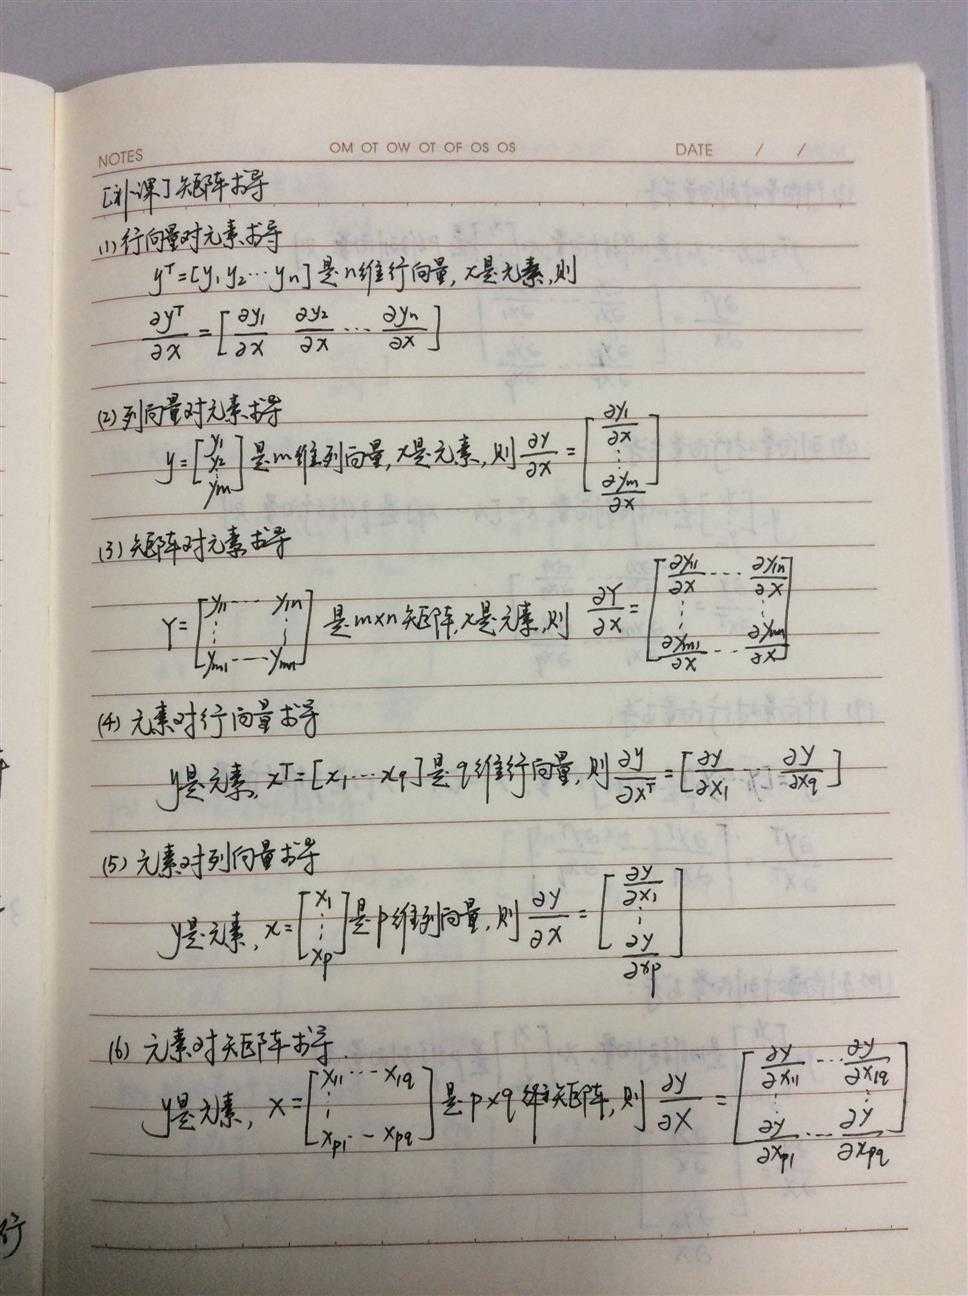 NOTES OM OT OW OT OF OS OS DATE / /
[补课]矩阵求导
(1)行向量对元素求导
yᵀ=[y₁ y₂ ⋯ yₙ]是n维行向量,x是元素,则
∂yᵀ/∂x = [∂y₁/∂x ∂y₂/∂x ⋯ ∂yₙ/∂x]
(2)列向量对元素求导
y=[y₁ y₂ ⋮ yₘ]是m维列向量,x是元素,则 ∂y/∂x = [∂y₁/∂x ⋮ ∂yₘ/∂x]
(3)矩阵对元素求导
Y=[y₁₁ ⋯ y₁ₙ ⋮ ⋮ yₘ₁ ⋯ yₘₙ]是m×n矩阵,x是元素,则 ∂Y/∂x = [∂y₁₁/∂x ⋯ ∂y₁ₙ/∂x ⋮ ⋮ ∂yₘ₁/∂x ⋯ ∂yₘₙ/∂x]
(4)元素对行向量求导
y是元素,xᵀ=[x₁ ⋯ x_q]是q维行向量,则 ∂y/∂xᵀ = [∂y/∂x₁ ⋯ ∂y/∂x_q]
(5)元素对列向量求导
y是元素,x=[x₁ ⋮ x_p]是p维列向量,则 ∂y/∂x = [∂y/∂x₁ ⋮ ∂y/∂x_p]
(6)元素对矩阵求导.
y是元素,X=[x₁₁ ⋯ x₁q ⋮ x_p1 ⋯ x_pq]是p×q维矩阵,则 ∂y/∂X = [∂y/∂x₁₁ ⋯ ∂y/∂x₁q ⋮ ⋮ ∂y/∂x_p1 ⋯ ∂y/∂x_pq]
行